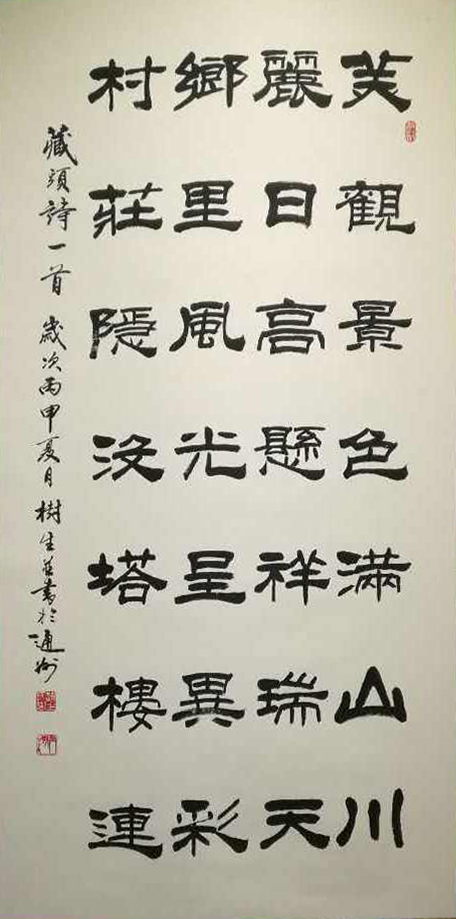 美觀景色滿山川
麗日高懸祥瑞天
鄉里風光呈異彩
村莊隱没塔樓連
藏頭詩一首 歲次丙申夏月樹生並書於通州